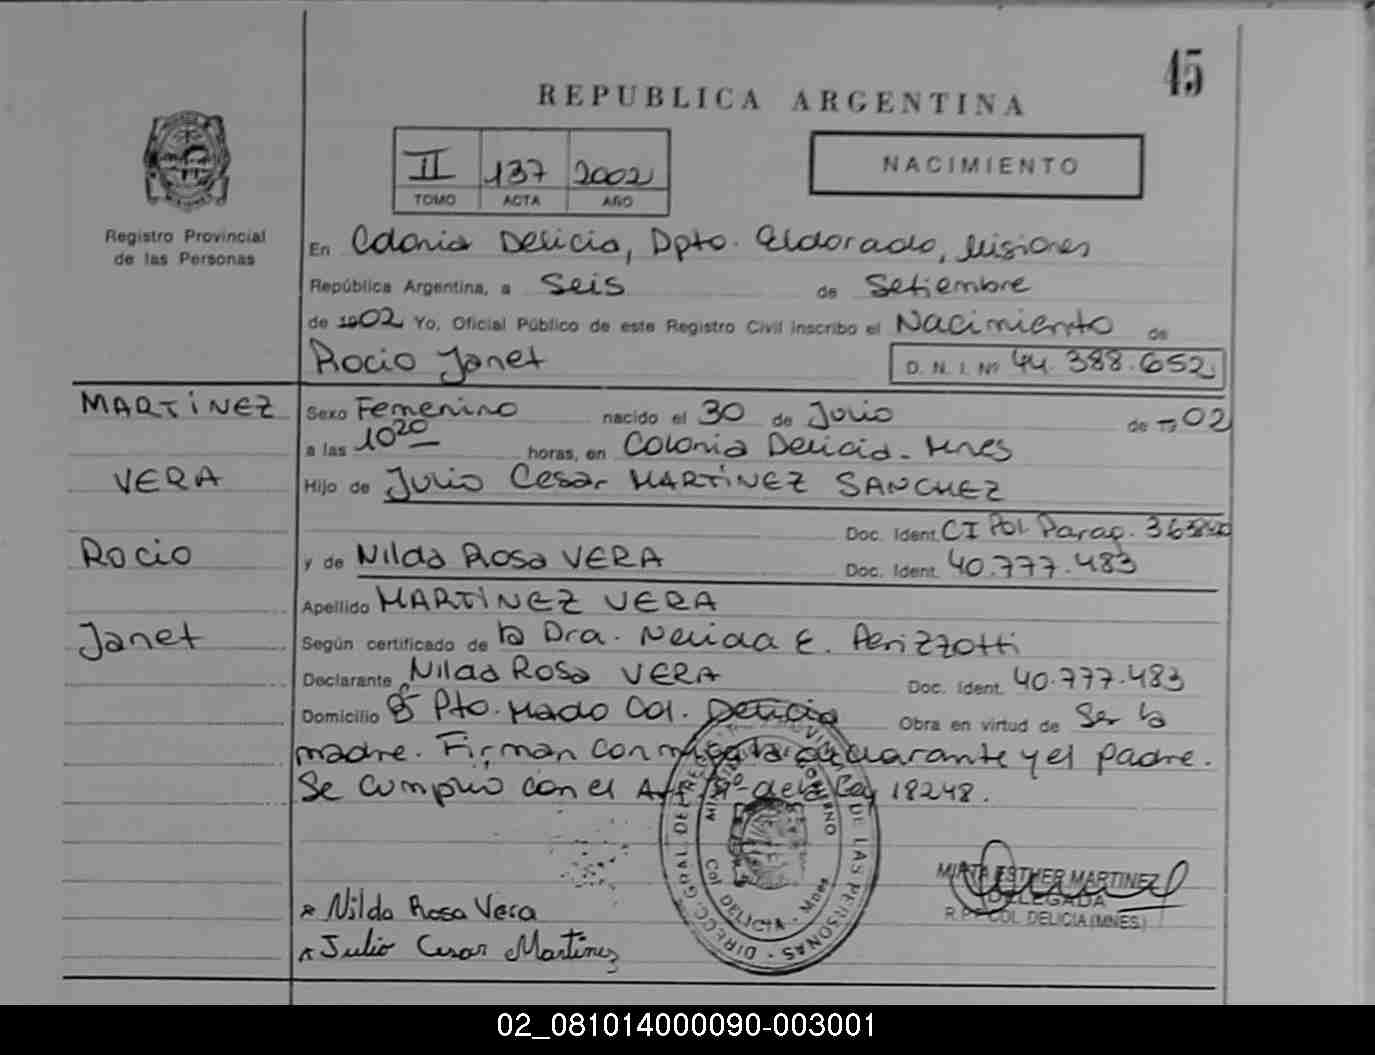 45
REPUBLICA ARGENTINA
II 137 2002
TOMO ACTA AÑO
NACIMIENTO
Registro Provincial
de las Personas
En Colonia Delicia, Dpto. Eldorado, Misiones
República Argentina, a Seis de Setiembre
de 1902 Yo, Oficial Público de este Registro Civil inscribo el Nacimiento de
Rocio Janet D. N. I. Nº 44.388.652
MARTINEZ
VERA
Rocio
Janet
Sexo Femenino nacido el 30 de Julio de 19 02
a las 10 20 horas, en Colonia Delicia - Mnes
Hijo de Julio Cesar MARTINEZ SANCHEZ
Doc. Ident. CI Pol. Parag.
y de Nilda Rosa VERA Doc. Ident. 40.777.483
Apellido MARTINEZ VERA
Según certificado de la Dra. Nelida E. Perizzotti
Declarante Nilda Rosa VERA Doc. Ident. 40.777.483
Domicilio Pto. Mado Col. Delicia Obra en virtud de Ser la
madre. Firman conmigo la declarante y el padre.
Se cumplió con el Art. de la Ley 18248.
DIRECC. GRAL. DE LAS PERSONAS
Col. DELICIA - Mnes
MIRTA ESTHER MARTINEZ
DELEGADA
R.P.P. COL. DELICIA (MNES.)
x Nilda Rosa Vera
x Julio Cesar Martinez
02_081014000090-003001